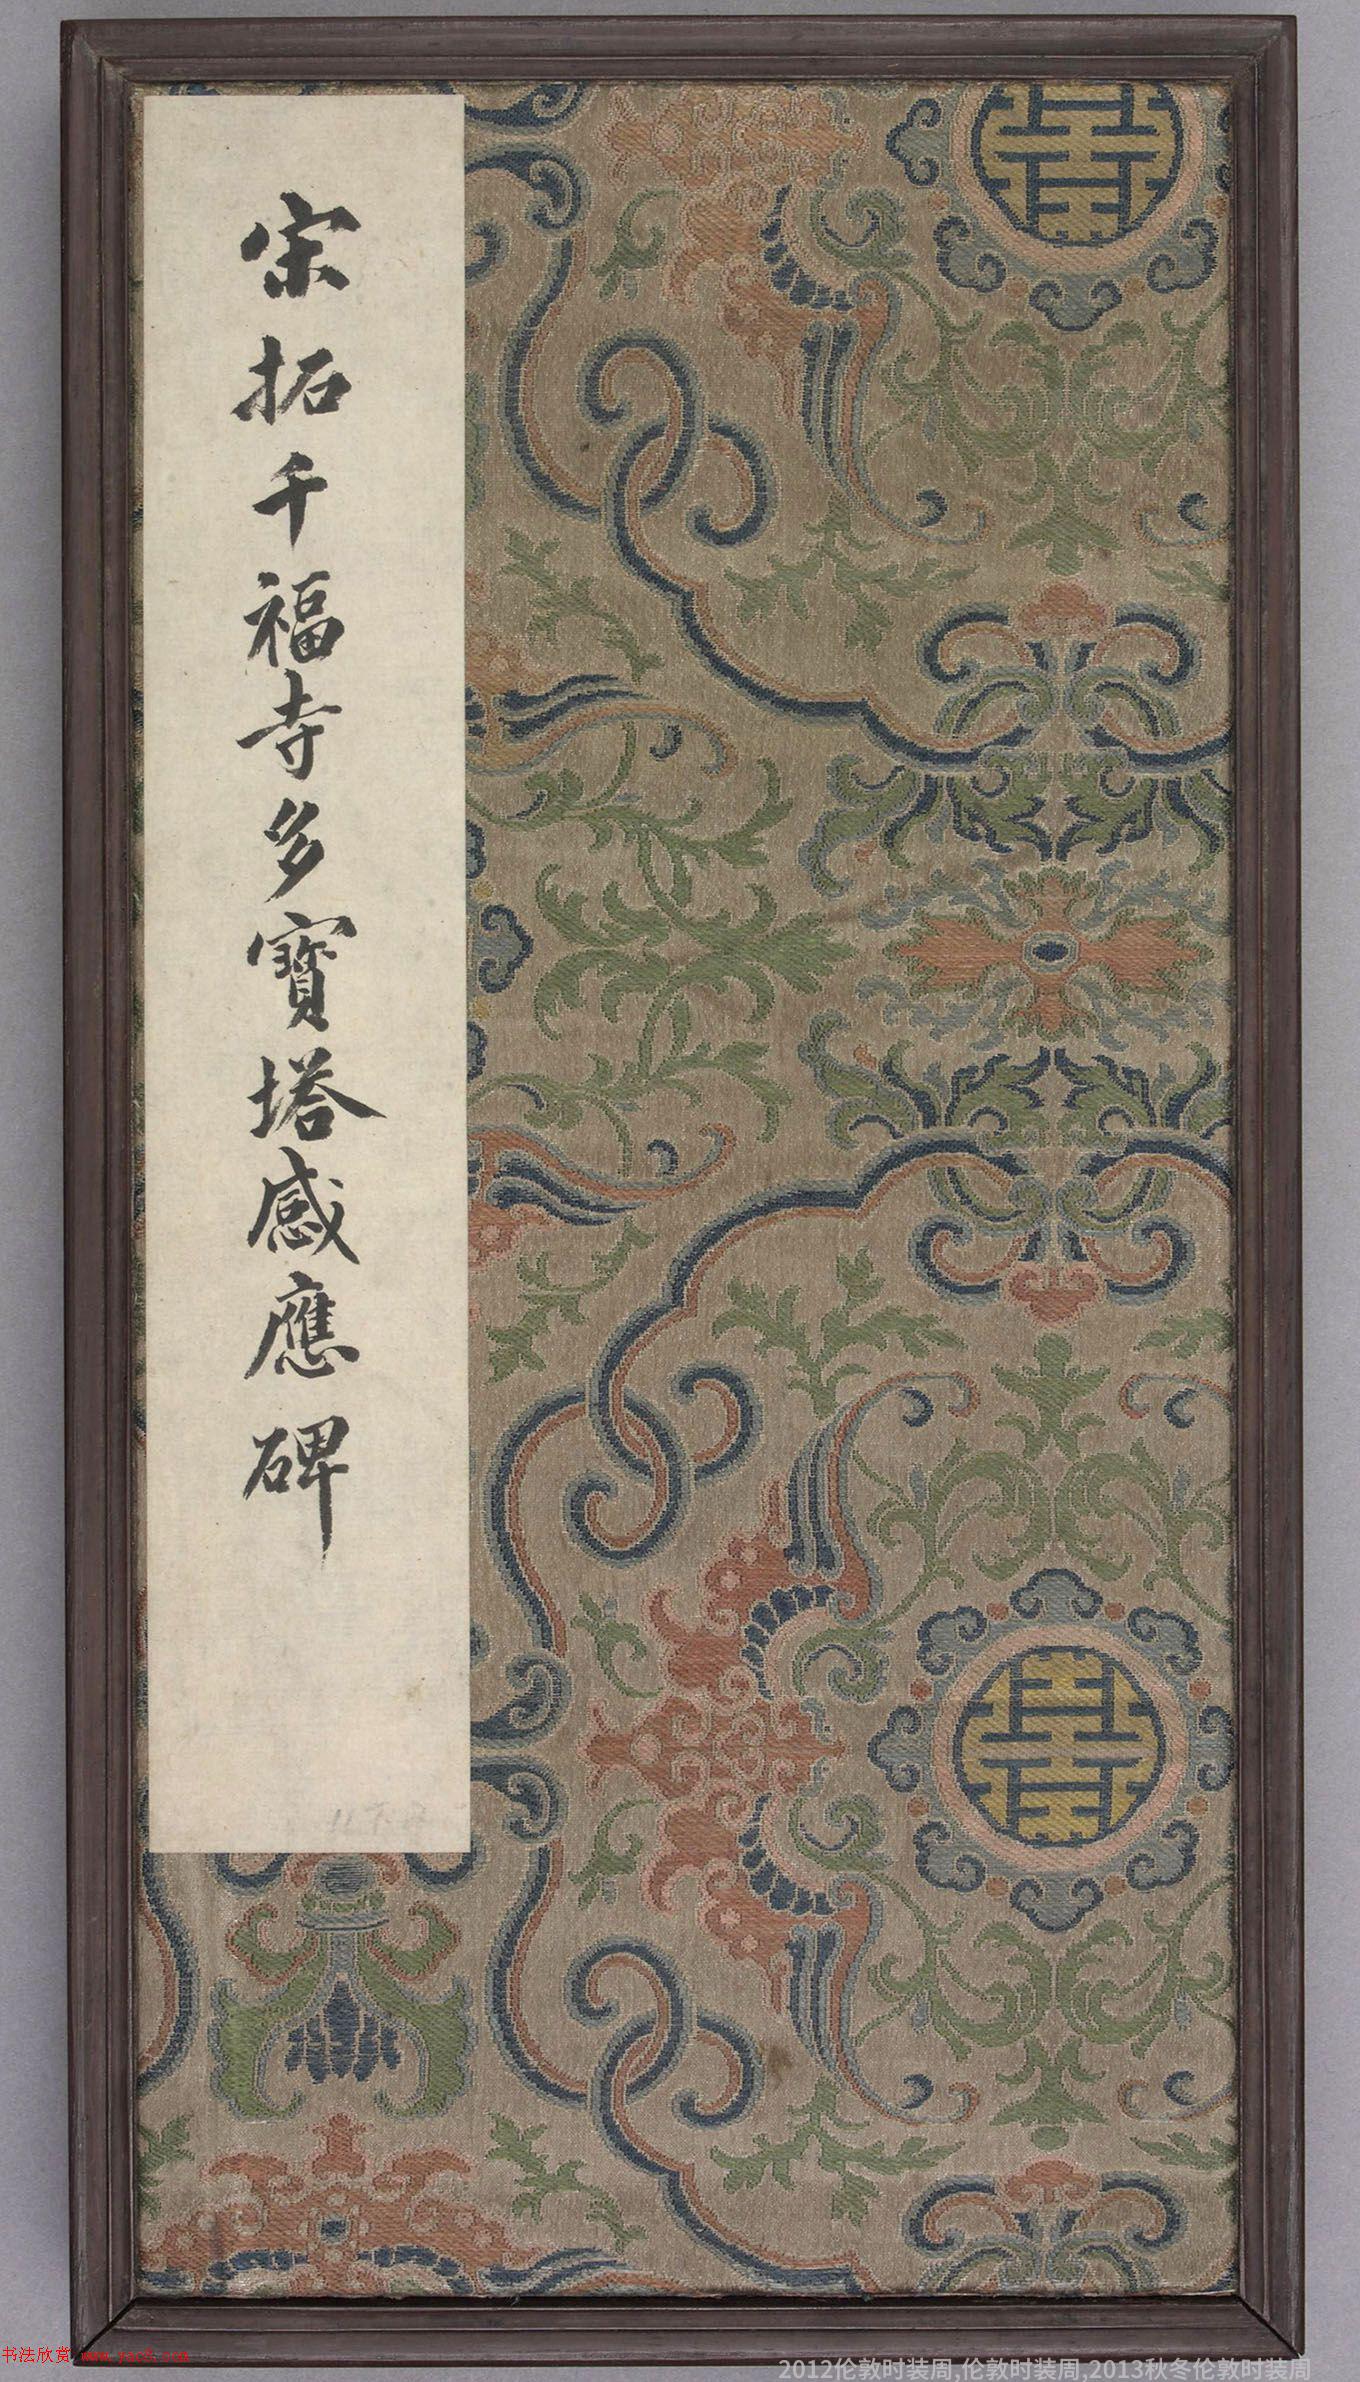 宋拓千福寺多寶塔感應碑
书法欣赏 www.yac8.com
2012伦敦时装周,伦敦时装周,2013秋冬伦敦时装周